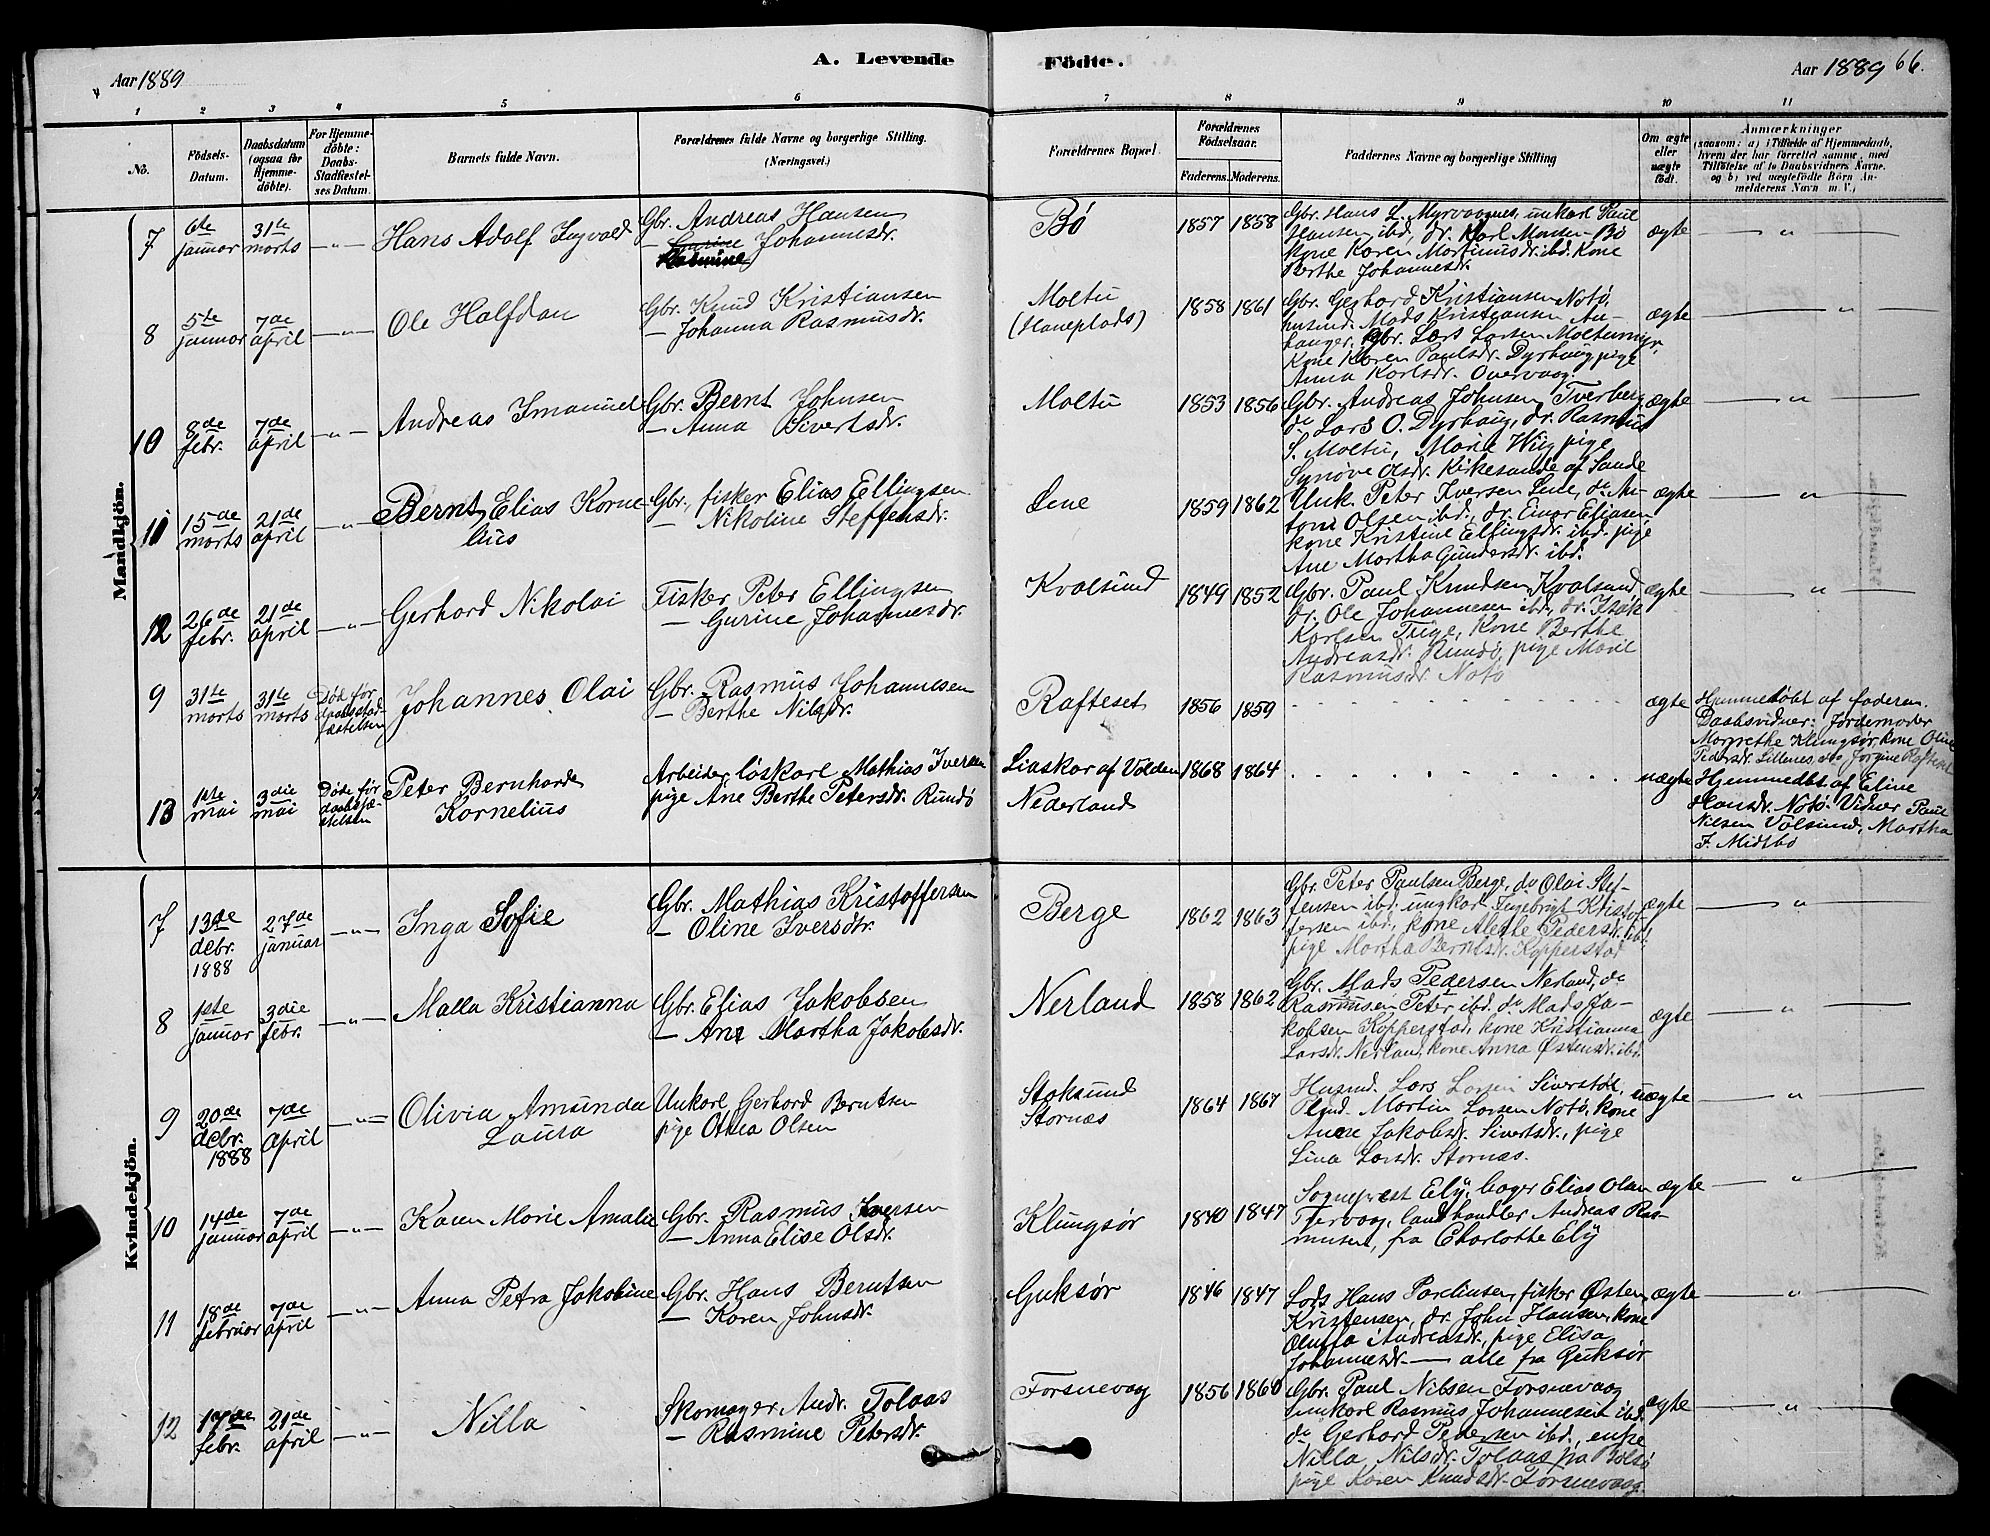 Aar 1889
A. Levende
Födte.
Aar 1889 66.
1 2 3 4 5 6 7 8 9 10 11
No.
Födsels-Datum.
Daabsdatum (ogsaa for Hjemme-döbte).
For Hjemme-döbte: Daabs-Stadfæstel-ses Datum.
Barnets fulde Navn.
Forældrenes fulde Navne og borgerlige Stilling.
(Næringsvei.)
Forældrenes Bopæl.
Forældrenes Födselsaar.
Faderens. Moderens.
Faddernes Navne og borgerlige Stilling
Om ægte eller uægte födt.
Anmærkninger
(saasom: a) i Tilfælde af Hjemmedaab,
hvem der har forrettet samme, med
Tilföielse af to Daabsvidners Navne.
og b) ved uægtefödte Börn An-
melderens Navn m. V.)
Mandkjön.
7 6te januar 31te marts —„— Hans Adolf Ingvald
Gbr. Andreas Hansen
— Johannesdr.
Bö 1857 1858
Gbr. Hans L. Myrvaagnes, unkarl Paul
Hansen ibd, dr. Karl Monsen Bö
kone Karen Martinusdr. ibd. kone
Berthe Johannesdr.
ægte — „ —
8 5te januar 7de april —„— Ole Halfdan
Gbr. Knud Kristiansen
— Johanna Rasmusdr.
Moltu
(Haneplads)
1858 1861
Gbr. Gerhard Kristiansen Notö,
husmd. Mads Kristiansen Au-
hauger, Gbr. Lars Larsen Moltumyr,
Kone Karen Paulsdr. Dyrhaug pige
Anna Karlsdr. Overvaag.
ægte — „ —
10 8de febr. 7de april —„— Andreas Imanuel
Gbr. Bernt Johnsen
— Anna Sivertsdr.
Moltu 1853 1856
Gbr. Andreas Johnsen Tverberg
do Lars O. Dyrhaug, dr. Rasmus
S. Moltu, Marie Wiig pige
Synöve Olsdr. Kirkesande af Sande
ægte — „ —
11 15de marts 21de april —„— Bernt Elias Korne
lius
Gbr. fisker Elias Ellingsen
— Nikoline Steffensdr.
Lene 1859 1862
Unk. Peter Iversen Lene, do An-
toni Olsen ibd., dr. Einar Eliasen
kone Kristine Ellingsdr. ibd. pige
Ane Martha Gundersdr. ibd.
ægte — „ —
12 26de febr. 21de april —„— Gerhard Nikolai
Fisker Peter Ellingsen
— Gurine Johannesdr.
Kvalsund 1849 1852
Gbr. Paul Knudsen Kvalsund,
dr. Ole Johannesen ibd, dr. Isak
Karlsen Tuge, Kone Berthe
Andreasdr. Rundö, pige Marie
Rasmusdr. Notö
ægte — „ —
9 31te marts 31te marts Döde för daabsstad-fæstelsen Johannes Olai
Gbr. Rasmus Johannesen
— Berthe Nilsdr.
Rafteset 1856 1859
ægte
Hjemmedöbt af faderen.
Daabsvidner: Jordemoder
Margrethe Klungsör, kone Oline
Pedersdr. Lillenes, do Jorgine Rafteset
13 1ste mai 3die mai Döde för daabsfæ-stelsen Peter Bernhard
Kornelius
Arbeider, löskarl Mathias Iversen
pige Ane Berthe Petersdr. Rundö
Liaskar af Volden
Nederland
1868 1864
uægte
Hjemmedbt. af Eline
Hansdr. Notö. Vidner Paul
Nilsen Volsund, Martha
J. Midtbö
Kvindekjön.
7 13de debr. 1888 27de januar —„— Inga Sofie
Gbr. Mathias Kristoffersen
— Oline Iversdtr.
Berge 1862 1863
Gbr. Peter Paulsen Berge, do Olai Stef-
fensen ibd. ungkarl Ingebrigt Kristof-
fersen ibd, kone Alethe Pedersdr. ibd.
pige Martha Berntsdr. Kopperstad
ægte — „
8 1ste januar 3die febr. —„— Malla Kristianna
Gbr. Elias Jakobsen
— Ane Martha Jakobsdr.
Nerland 1858 1862
Gbr. Mads Pedersen Nerland, do
Rasmusen Peter ibd. do Mads Ja-
kobsen Kopperstad, kone Kristianna
Larsdr. Nerlan, kone Anna Östensdr. ibd.
ægte — „ —
9 20de debr. 1888 7de april —„— Olivia Amunda
Laura
Unkarl Gerhard Berntsen
pige Othea Olsen
Stoksund
Stornæs
1864 1867
Husmd. Lars Larsen Siverstöl,
Plsmd. Martin Larsen Notö, kone
Anne Jakobsdr. Sivertsdr., pige
Lina Larsdr. Stornæs.
uægte — „ —
10 14de januar 7de april —„— Karen Marie Amalie
Gbr. Rasmus Iversen
— Anna Elise Olsdr.
Klungsör 1840 1847
Sogneprest Ely, bager Elias Olsen
Tjervaag, landhandler Andreas Ras-
musen, frø Charlotte Ely
ægte — „ —
11 18de februar 7de april —„— Anna Petra Jakobine
Gbr. Hans Berntsen
— Karen Johnsdr.
Guksör 1846 1847
Lods Hans Parelinsen, fisker Östen
Kristensen, dr. John Hansen, kone
Oluffa Andreasdr., pige Elisa
Johannesdr. — alle fra Guksör
ægte — „ —
12 17de febr. 21de april —„— Nilla
Skomager Andr. Tolaas
— Rasmine Petersdr.
Forsnevaag 1856 1860
Gbr. Paul Nilsen Forsnevaag
unkarl Rasmus Johannesen ibd.
do Gerhard Pedersen ibd, enke
Nilla Nilsdr. Tolaas fra Bolsö
pige Karen Knudsdr. Forsnevaag
ægte — „ —